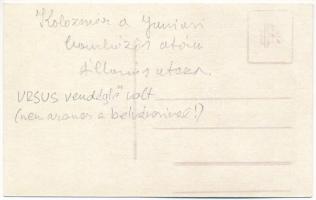 Kolozsvár a Juniusi
bombázás után
Állomás utca.
URSUS vendéglő volt
(nem azonos a belvárosival!)